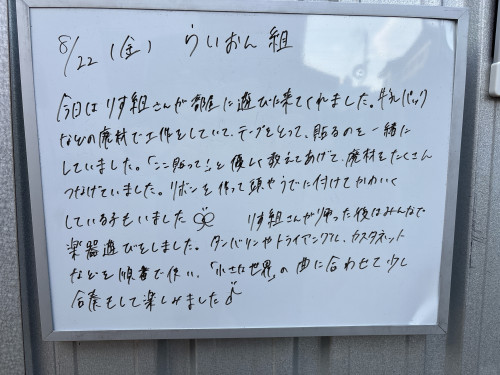 8/22 (金) らいおん組
今日はりす組さんが部屋に遊びに来てくれました。牛乳パック
などの廃材で工作をしていて、テープをとって、貼るのを一緒に
していました。「ここ貼って!」と優しく教えてあげて、廃材をたくさん
つなげていました。リボンを作って頭やうでに付けてかわいく
している子もいました りす組さんが帰った後はみんなで
楽器遊びをしました。タンバリンやトライアングル、カスタネット
などを順番で使い、「小さな世界」の曲に合わせて少し
合奏をして楽しみました♪